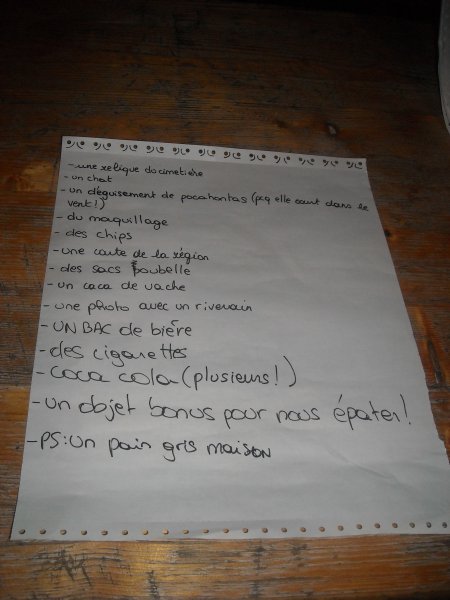 - une relique du cimetière
- un chat
- un déguisement de pocahontas (pcq elle court dans le
vent!)
- du maquillage
- des chips
- une carte de la région
- des sacs poubelle
- un caca de vache
- une photo avec un riverain
- UN BAC de bière
- des cigarettes
- coca cola (plusieurs!)
- un objet bonus pour nous épater!
- PS: un pain gris maison